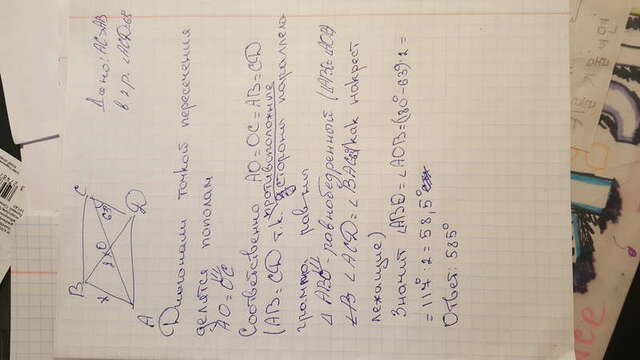 B
C
x
2x
O
63°
A
D
Дано: AC>AB
в 2 р. ∠ACD=63
Диагонали точкой пересечения
делятся пополам
AO=OC
Соответственно AO=OC=AB=CD
(AB=CD т.к. противоположные
стороны параллело
грамма равны
Δ ABO - равнобедренный (∠ABO=∠AOB)
∠B ∠ACD=∠BAC как накрест
лежащие)
Значит ∠ABO=∠AOB=(180°-63):2=
=117°:2=58,5°
Ответ: 585°